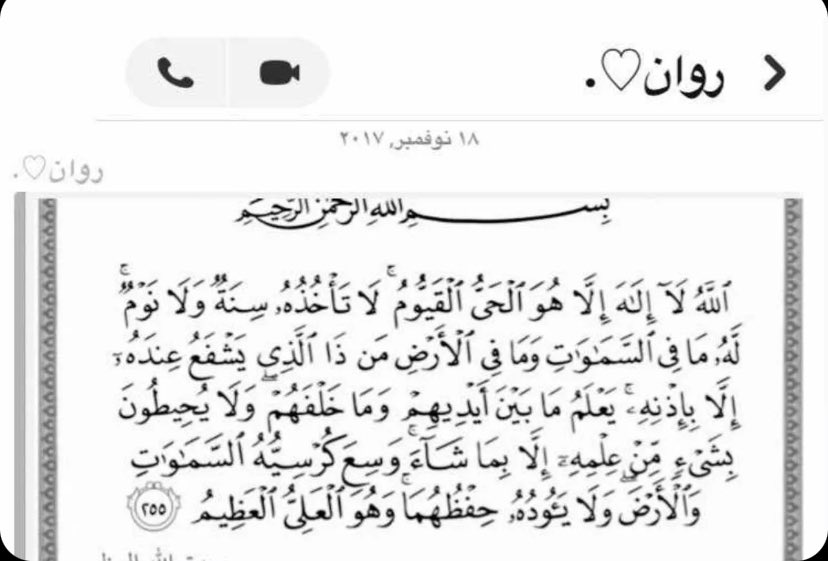 روان♡.
١٨ نوفمبر, ٢٠١٧
روان♡.
بِسْمِ اللهِ الرَّحْمَٰنِ الرَّحِيمِ
ٱللَّهُ لَآ إِلَٰهَ إِلَّا هُوَ ٱلْحَىُّ ٱلْقَيُّومُ ۚ لَا تَأْخُذُهُۥ سِنَةٌ وَلَا نَوْمٌ ۚ
لَّهُۥ مَا فِى ٱلسَّمَٰوَٰتِ وَمَا فِى ٱلْأَرْضِ مَن ذَا ٱلَّذِى يَشْفَعُ عِندَهُۥٓ
إِلَّا بِإِذْنِهِۦ ۚ يَعْلَمُ مَا بَيْنَ أَيْدِيهِمْ وَمَا خَلْفَهُمْ ۖ وَلَا يُحِيطُونَ
بِشَىْءٍ مِّنْ عِلْمِهِۦٓ إِلَّا بِمَا شَآءَ ۚ وَسِعَ كُرْسِيُّهُ ٱلسَّمَٰوَٰتِ
وَٱلْأَرْضَ ۖ وَلَا يَـُٔودُهُۥ حِفْظُهُمَا ۚ وَهُوَ ٱلْعَلِىُّ ٱلْعَظِيمُ ٢٥٥